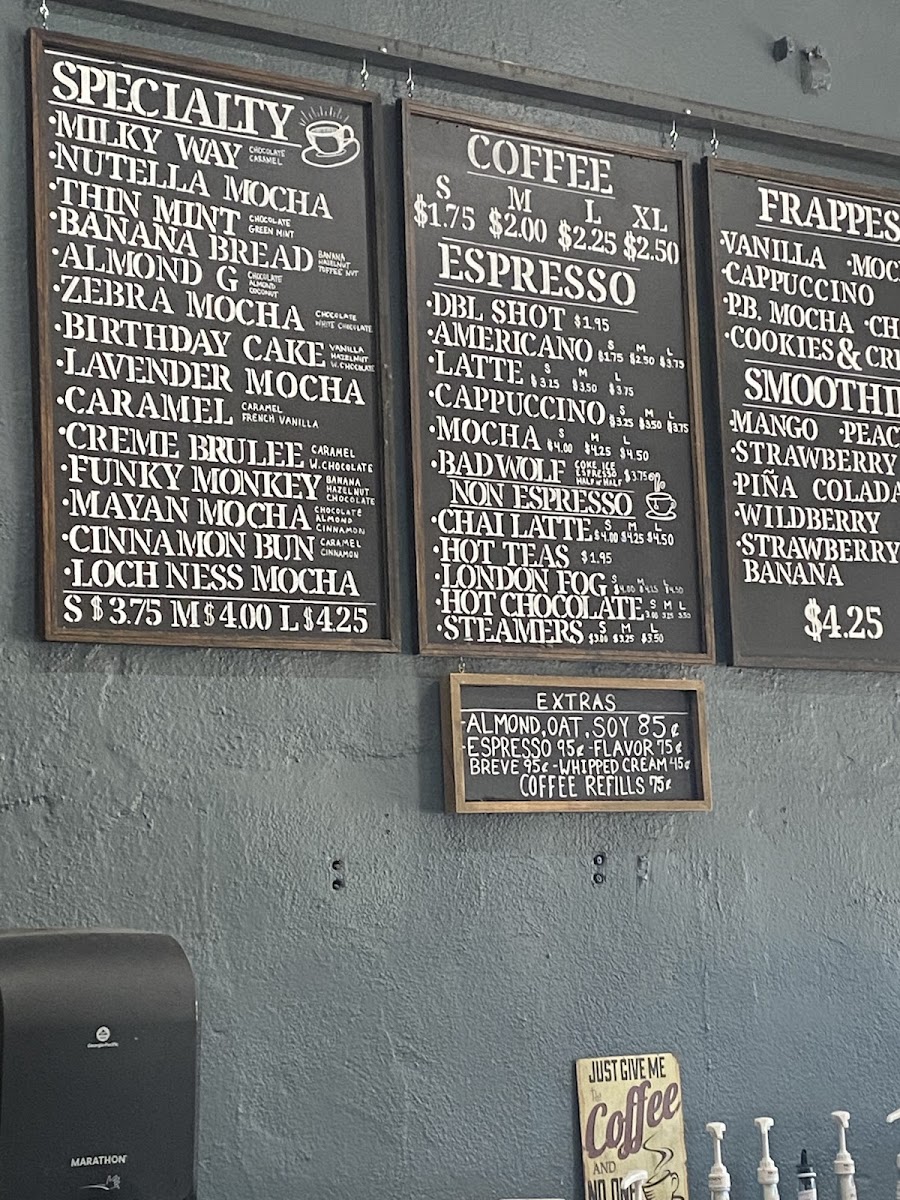 SPECIALTY
·MILKY WAY CHOCOLATE CARAMEL
·NUTELLA MOCHA
·THIN MINT CHOCOLATE GREEN MINT
·BANANA BREAD BANANA HAZELNUT TOFFEE NUT
·ALMOND G CHOCOLATE ALMOND COCONUT
·ZEBRA MOCHA CHOCOLATE WHITE CHOCOLATE
·BIRTHDAY CAKE VANILLA HAZELNUT W.CHOCOLATE
·LAVENDER MOCHA
·CARAMEL CARAMEL FRENCH VANILLA
·CREME BRULEE CARAMEL W.CHOCOLATE
·FUNKY MONKEY BANANA HAZELNUT CHOCOLATE
·MAYAN MOCHA CHOCOLATE ALMOND CINNAMON
·CINNAMON BUN CARAMEL CINNAMON
·LOCH NESS MOCHA
S $3.75 M $4.00 L $4.25
COFFEE
S M L XL
$1.75 $2.00 $2.25 $2.50
ESPRESSO
·DBL SHOT $1.95
·AMERICANO S $1.75 M $2.50 L $3.75
·LATTE S $3.25 M $3.50 L $3.75
·CAPPUCCINO S $3.25 M $3.50 L $3.75
·MOCHA S $4.00 M $4.25 L $4.50
·BAD WOLF COKE ICE ESPRESSO HALF N' HALF $3.75
NON ESPRESSO
·CHAI LATTE S $4.00 M $4.25 L $4.50
·HOT TEAS $1.95
·LONDON FOG S $4.00 M $4.25 L $4.50
·HOT CHOCOLATE S 3.00 M 3.25 L 3.50
·STEAMERS S $3.00 M $3.25 L $3.50
FRAPPES
·VANILLA ·MOC
·CAPPUCCINO
·P.B. MOCHA ·CH
·COOKIES & CRE
SMOOTHI
·MANGO ·PEAC
·STRAWBERRY
·PIÑA COLADA
·WILDBERRY
·STRAWBERRY
BANANA
$4.25
EXTRAS
-ALMOND, OAT, SOY 85¢
-ESPRESSO 95¢ -FLAVOR 75¢
BREVE 95¢ -WHIPPED CREAM 45¢
COFFEE REFILLS 75¢
Georgia-Pacific
MARATHON®
JUST GIVE ME
the
Coffee
AND
NO ONE